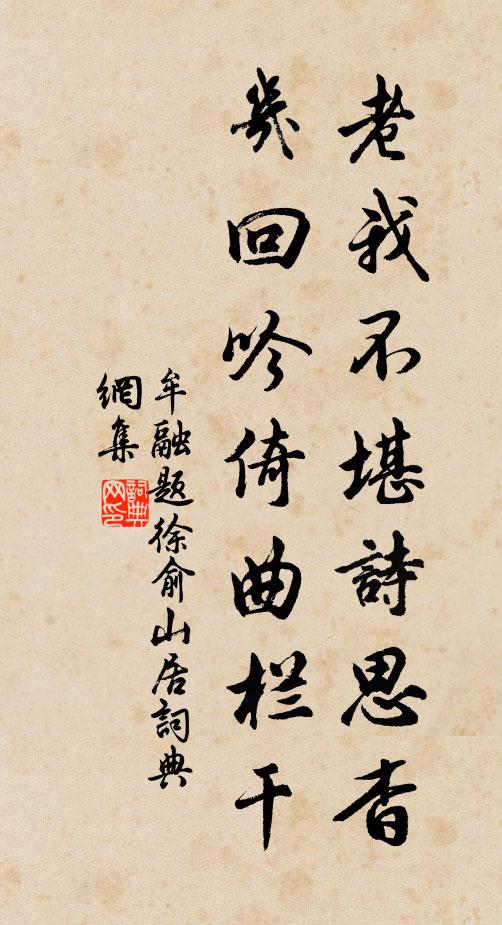 老我不堪詩思杳
幾回吟倚曲栏干
牟融题徐俞山居詞典
網集
詞典網印